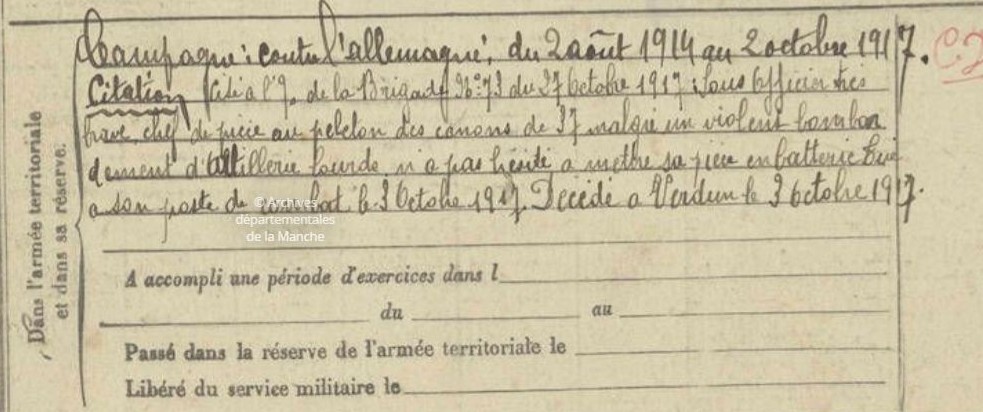 Campagne : contre l'allemagne, du 2 août 1914 au 2 octobre 1917.
Citation Cité à l'O. de la Brigade No 73 du 27 Octobre 1917 : Sous Officier très
brave, chef de pièce au peloton des canons de 37 malgré un violent bombar
dement d'artillerie lourde n'a pas hésité a mettre sa pièce en batterie Tué
a son poste de combat le 3 Octobre 1917. Décédé a Verdun le 3 octobre 1917.
© Archives
départementales
de la Manche
Dans l'armée territoriale
et dans sa réserve.
A accompli une période d'exercices dans l
du au
Passé dans la réserve de l'armée territoriale le
Libéré du service militaire le